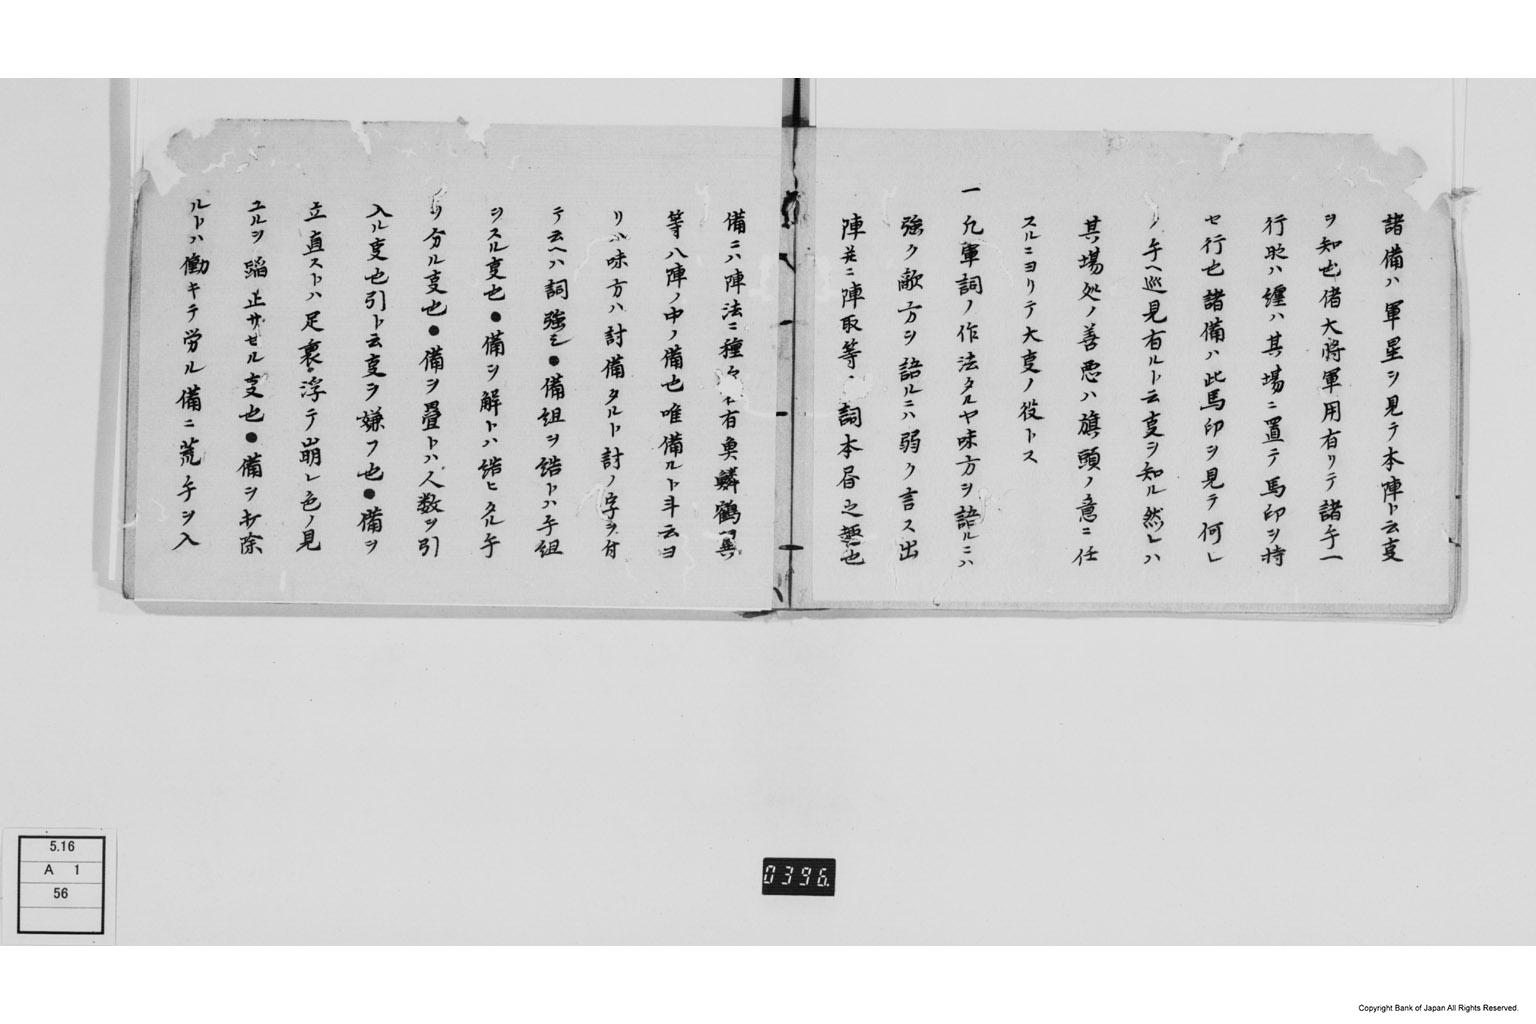 諸備ハ軍星ヲ見テ本陣ト云叓
ヲ知也偖大将軍用有リテ諸手一
行昣ハ纏ハ其場ニ置テ馬印ヲ持
セ行也諸備ハ此馬印ヲ見テ何レ
ノ手ヘ巡見有ルト云叓ヲ知ル然レハ
其場処ノ善悪ハ旗頭ノ意ニ任
スルニヨリテ大叓ノ役トス
一 凢軍詞ノ作法タルヤ味方ヲ語ルニハ
強ク敵方ヲ語ルニハ弱ク言ス出
陣并ニ陣取等ノ詞本昏之趣也
備ニハ陣法ニ種々有魚鱗鶴翼
等八陣ノ中ノ備也唯備ルト斗云ヨ
リハ味方ハ討備タルト討ノ字ヲ付
テ云ヘハ詞強シ●備組ヲ詰トハ手組
ヲスル叓也●備ヲ解トハ詰ヒタル手
ヲ分ル叓也●備ヲ畳トハ人数ヲ引
入ル叓也引ト云叓ヲ嫌フ也●備ヲ
立直ストハ足裏浮テ崩レ色ノ見
ユルヲ蹈止サゼル叓也●備ヲ打除
ルトハ働キテ労ル備ニ荒手ヲ入
5.16
A 1
56
0396.
Copyright Bank of Japan All Rights Reserved.